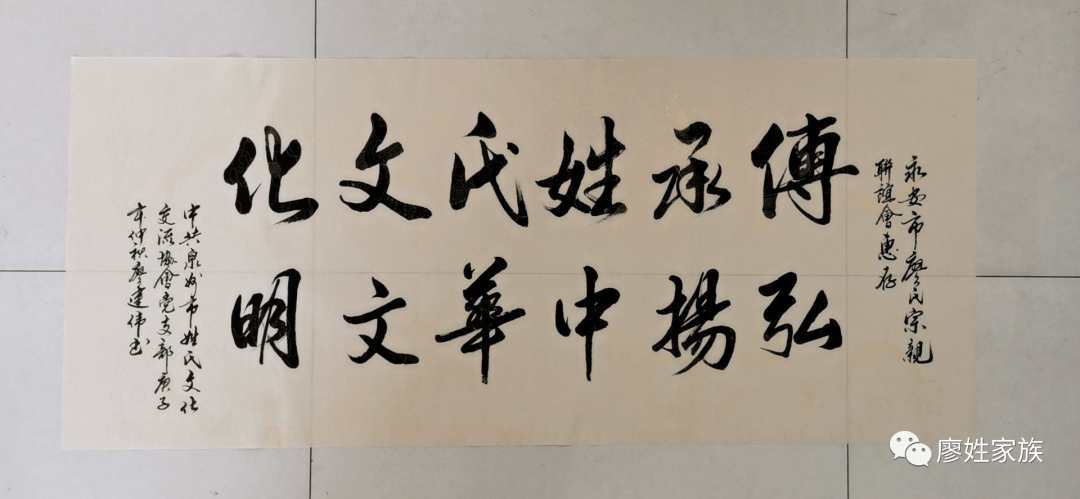 永安市廖氏宗親
聯誼會惠存
傳承姓氏文化
弘揚中華文明
中共泉州市姓氏文化
交流協會党支部庚子
年仲秋廖建伟书
廖姓家族